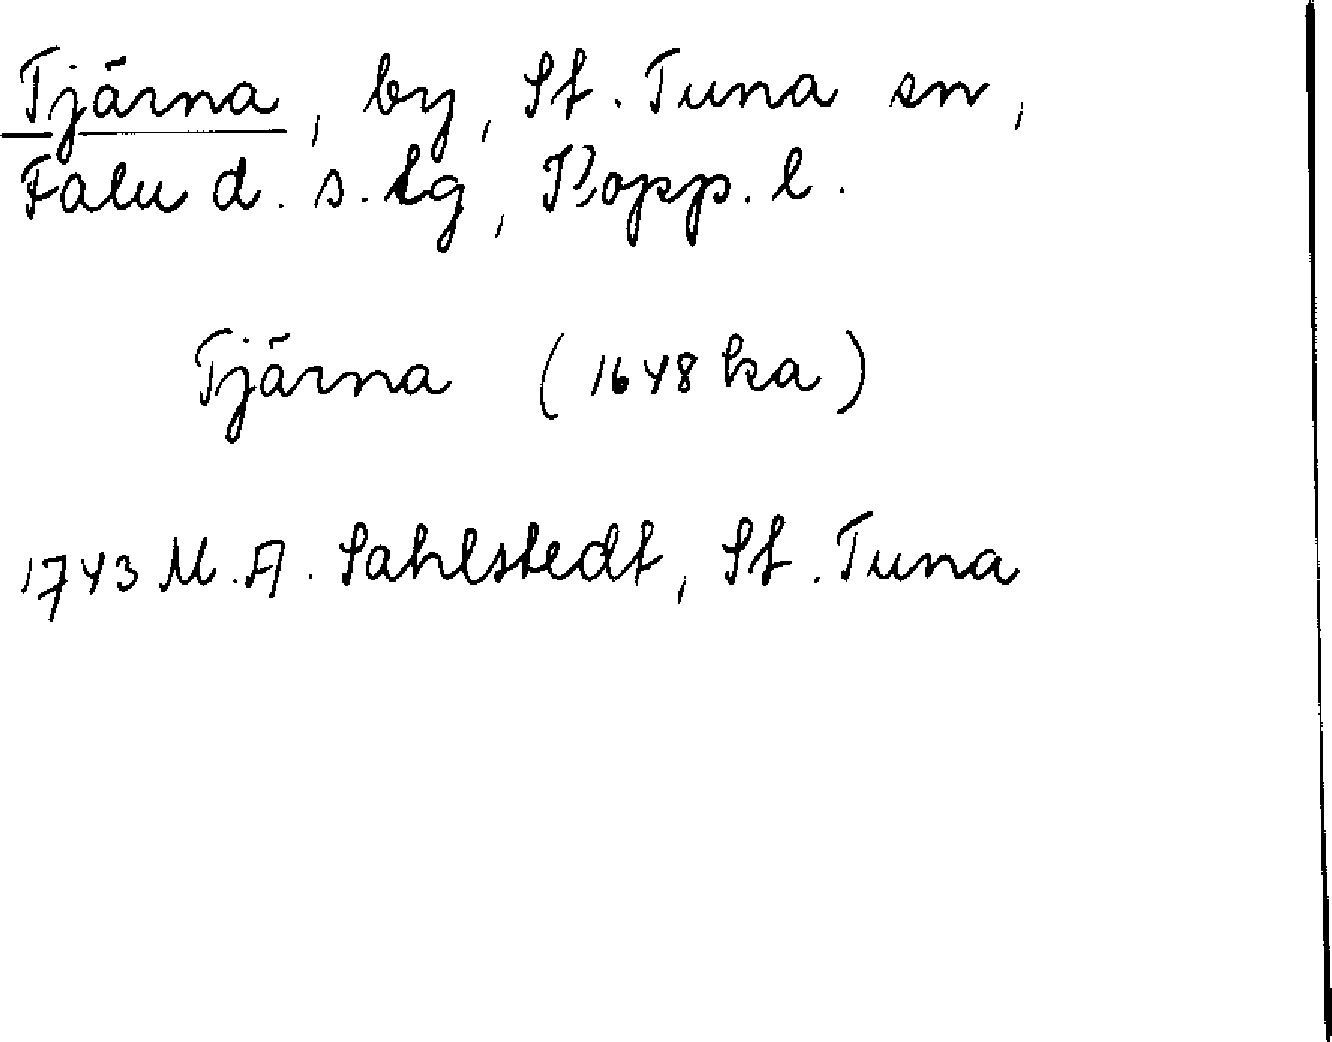 Tjärna, by, St. Tuna sn,
Falu d. s. lg, Kopp. l.
Tjärna (1648 ka)
1743 M. A. Sahlstedt, St. Tuna